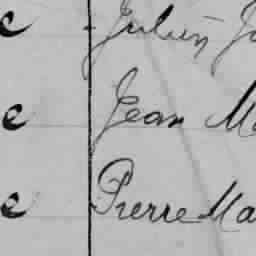 e Julien J
e Jean Ma
e Pierre Ma